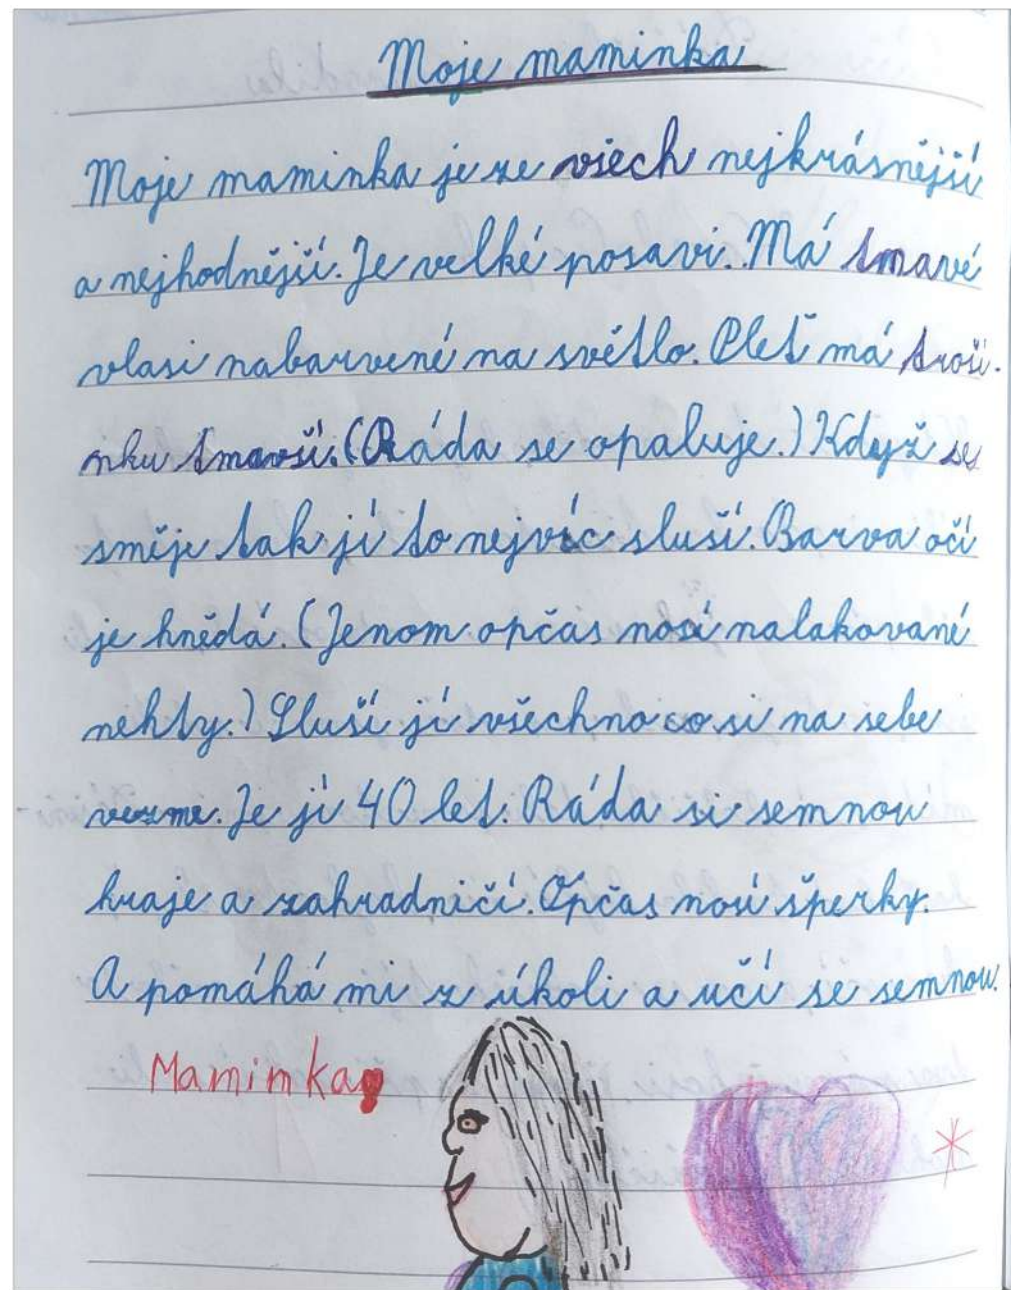 Moje maminka
Moje maminka je ze všech nejkrásnější
a nejhodnější. Je velké posavi. Má tmavé
vlasi nabarvené na světlo. Pleť má troši-
nku tmavší. (Ráda se opaluje.) Když se
směje tak jí to nejvíc sluší. Barva očí
je hnědá. (Jenom opčas nosí nalakované
nehty.) Sluší jí všechno co si na sebe
vezme. Je jí 40 let. Ráda si semnou
hraje a zahradničí. Opčas nosí šperky.
A pomáhá mi z úkoli a učí se semnou.
Maminka